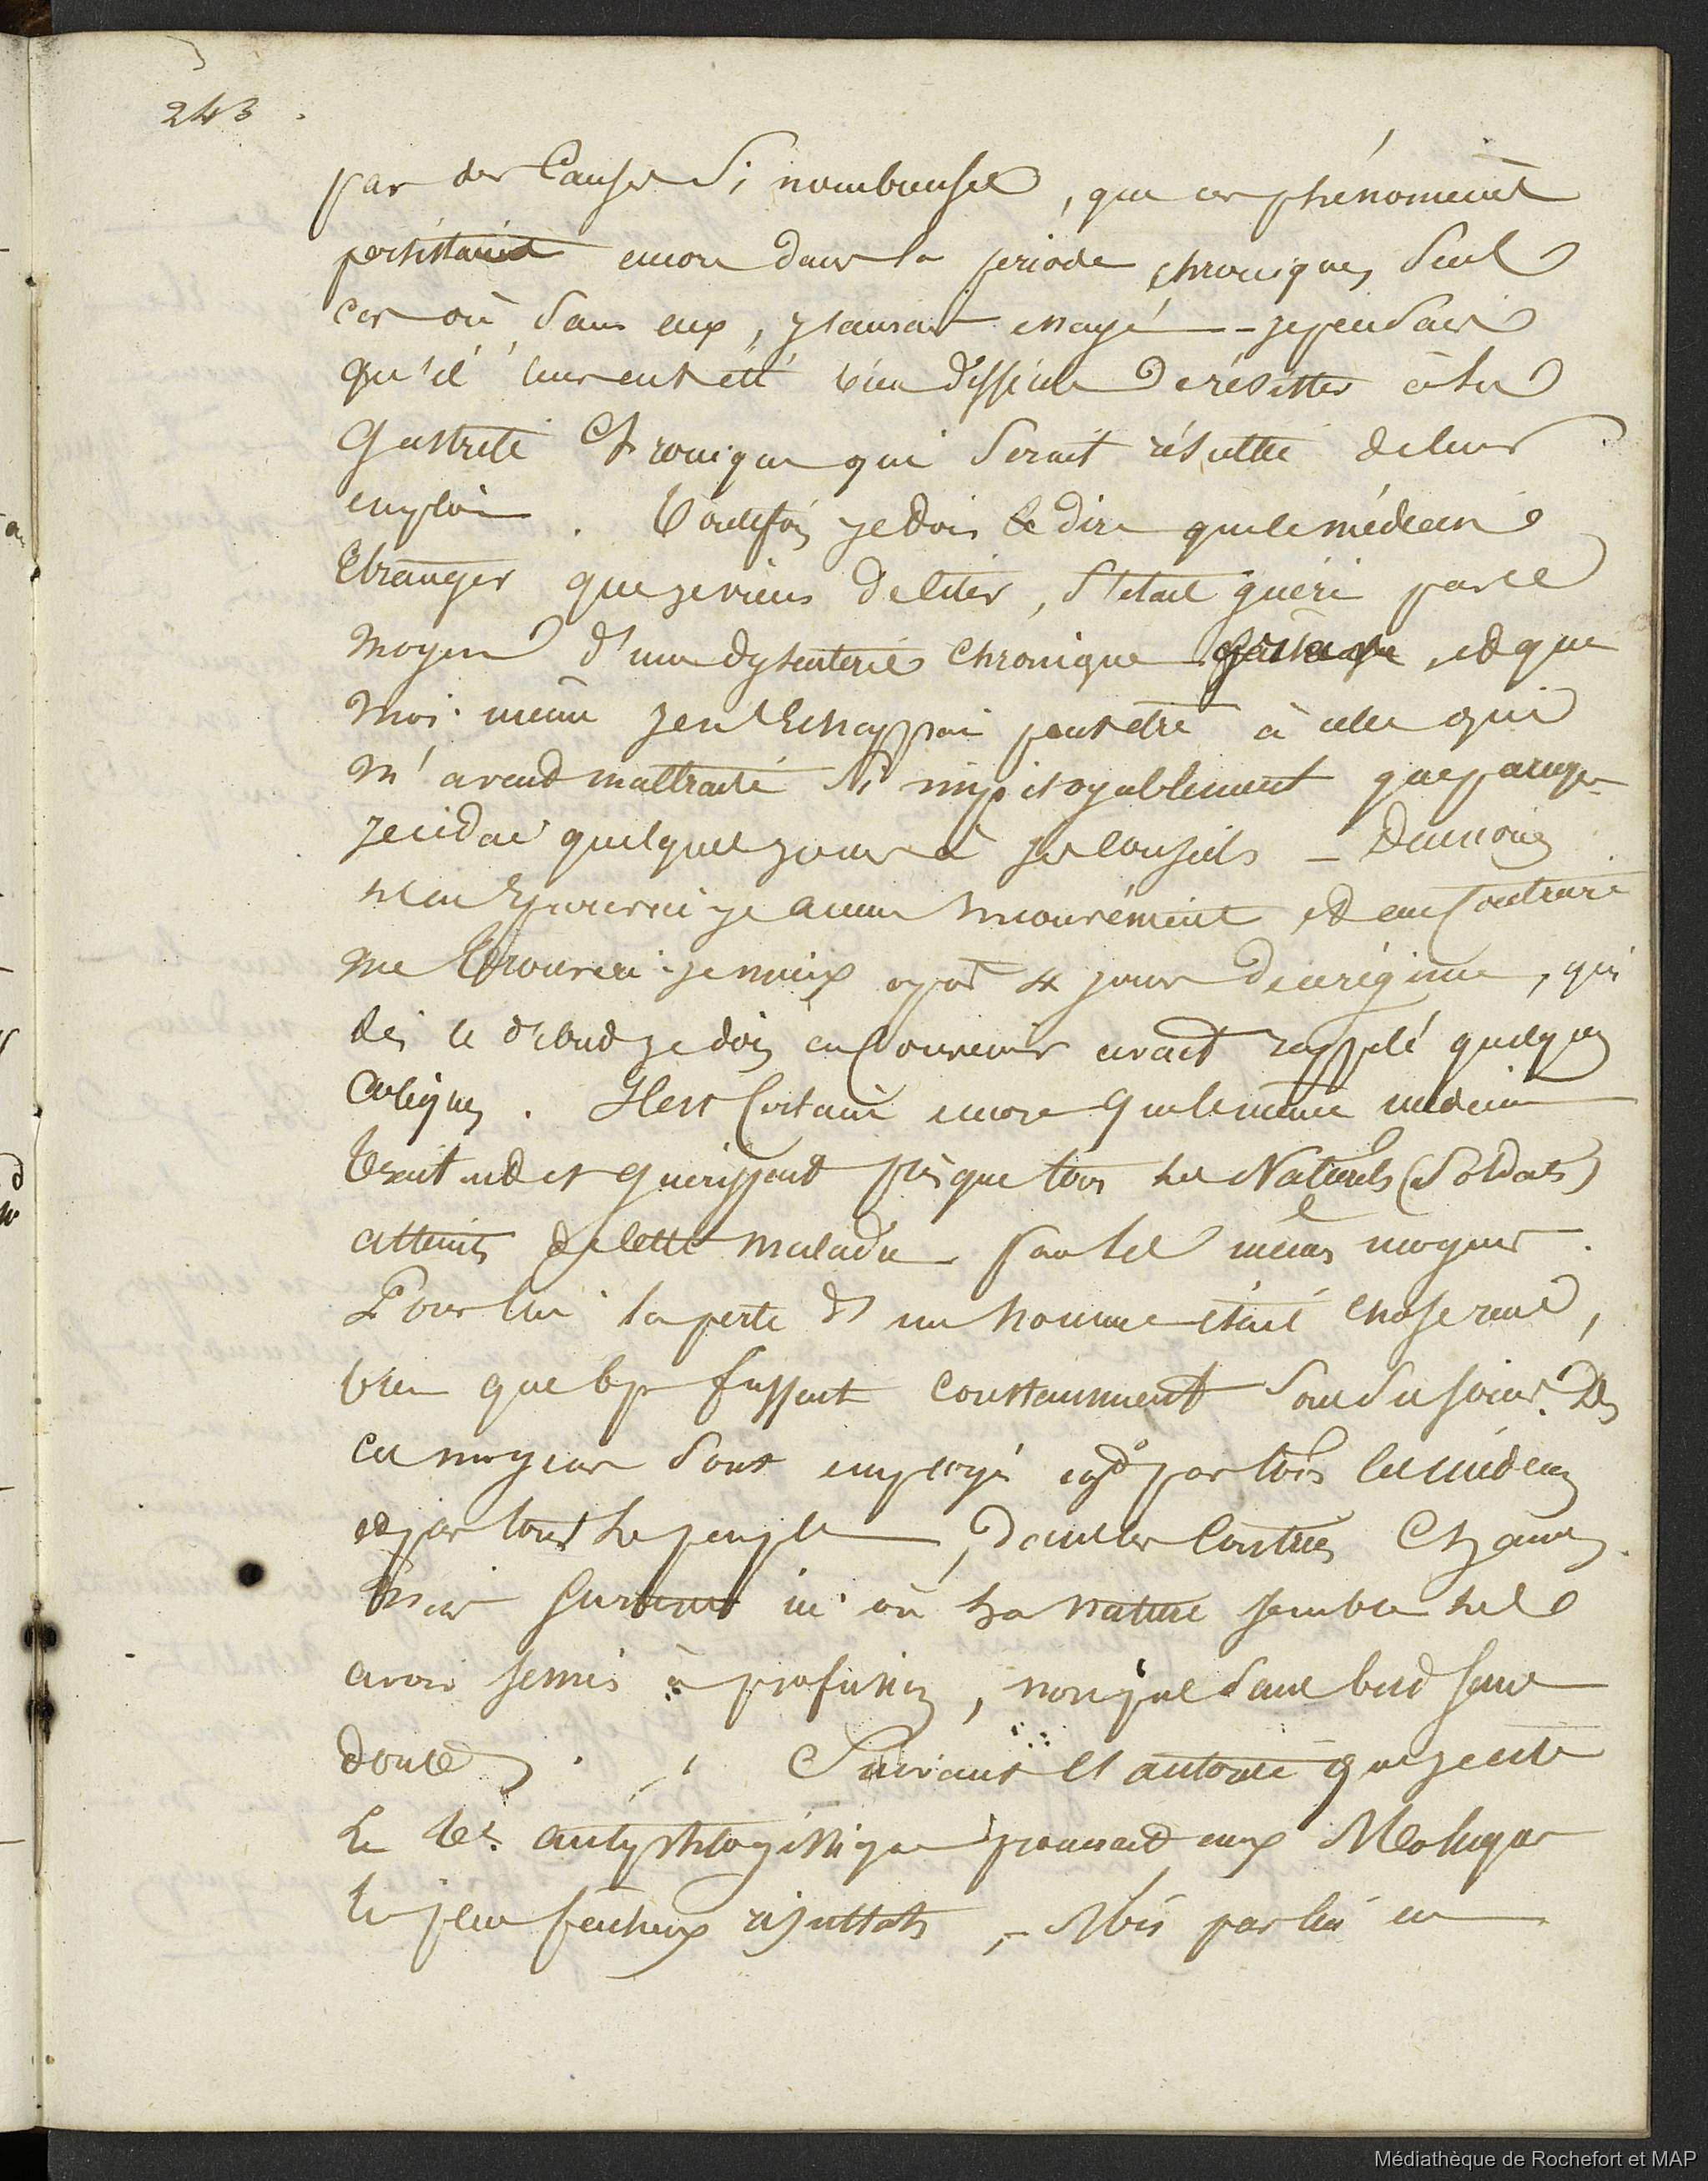 243.
par des Causes Si nombreuses, que ces phénomènes
persistaient encore dans la periode chronique, Seul
cas où, Sans eux, j'aurais essayé - je pensais
qu'il leur eut été bien difficile de résister à la
Gastrite Chronique qui Serait résulté de leur
emploi. Toutefois je dois le dire que le médecin
Etranger que je viens de Citer, S'était guéri par ce
moyen d'une dysenterie Chronique, et que
moi-même je n'échappai peut être à celle qui
m'avait maltraité Si impitoyablement que parceque
je cédai quelques jours à ses Conseils - Du moins
n'en éprouvai-je aucun mouvement et au Contraire
me trouvai-je mieux après 4 jours de ce régime, qui
dès le début je dois en Convenir avait rappelé quelques
Coliques. Il est Certain encore que le même médecin
traitait et guérissait presque tous les Naturels (Soldats)
atteints de cette maladie par les mêmes moyens.
Pour lui la perte d'un homme était chose rare,
bien que fussent constamment Sous Ses soins. De
ces moyens Sont employés par tous les médecins
et par tout le peuple, dans les Contrées Chaudes.
Mais Surtout ici où la nature semble les
avoir semés à profusion, non pas Sans but sans
doute. Suivant cet autorité que je cite
le tt. antiphlogistique pourrait aux Moluques
les plus fâcheux résultats, - Mais par lui en
Médiathèque de Rochefort et MAP